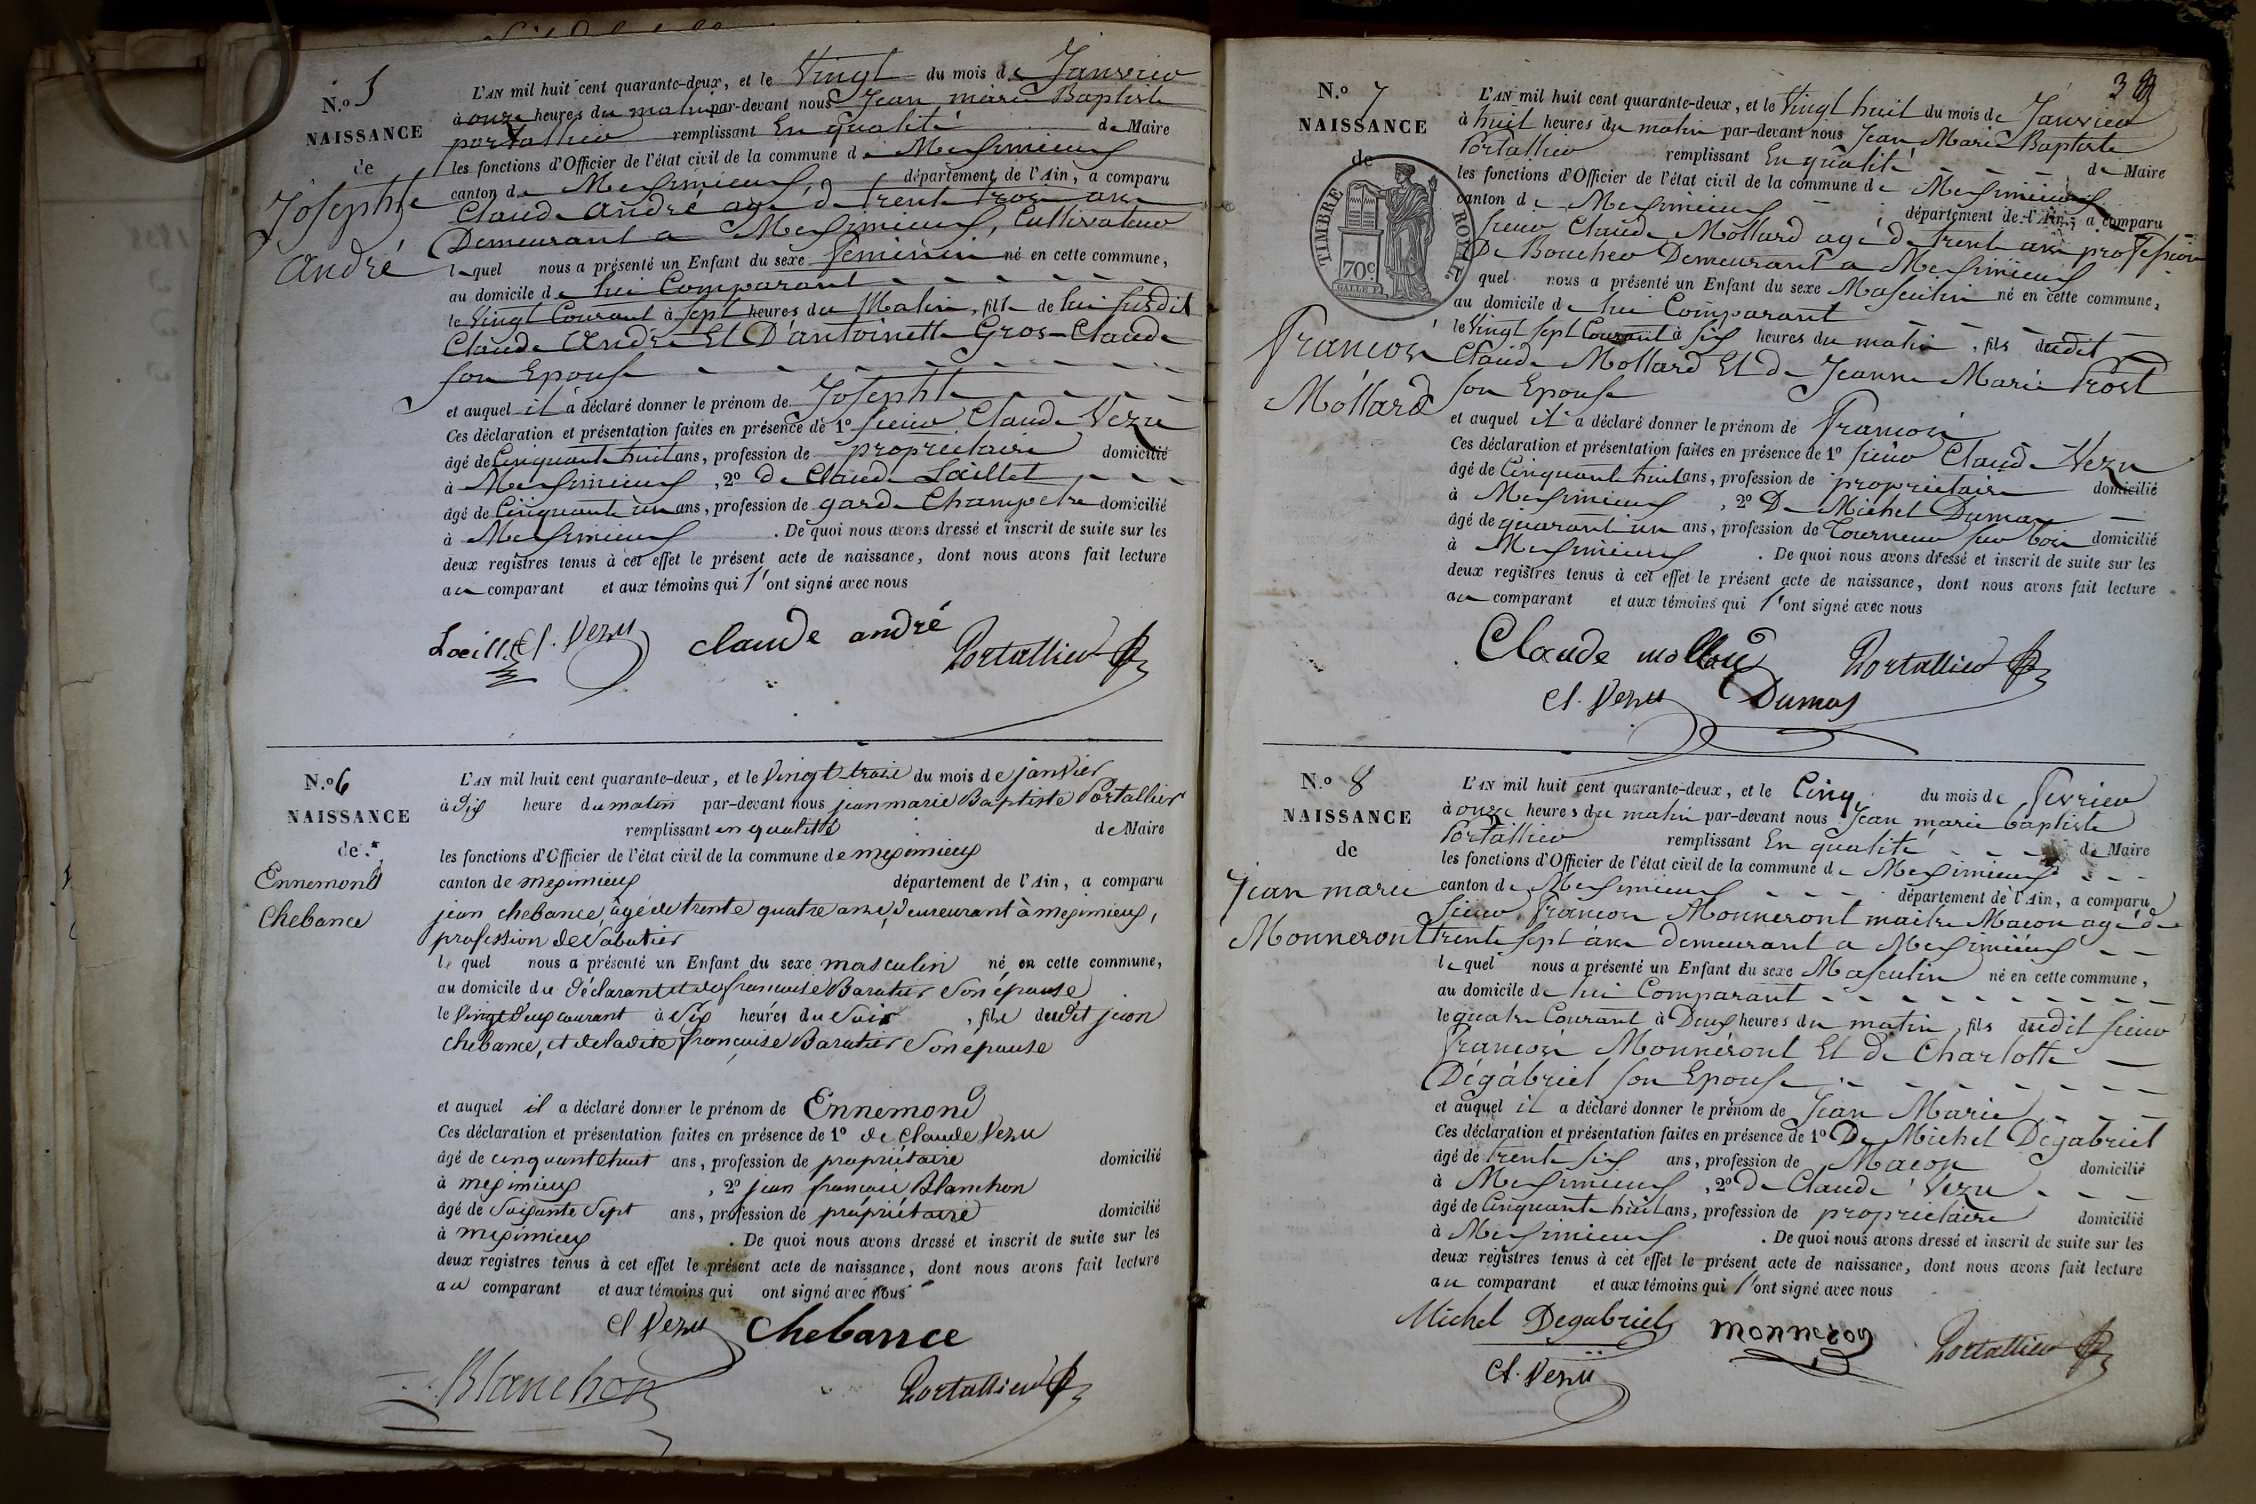 N.º 5
NAISSANCE
de
Josephte
André
L'AN mil huit cent quarante-deux, et le Vingt du mois de Janvier
à onze heures du matin par-devant nous Jean marie Baptiste
portallier remplissant En qualité de Maire
les fonctions d'Officier de l'état civil de la commune de Meximieux
canton de Meximieux département de l'Ain, a comparu
Claude André agé de trente trois ans
Demeurant a Meximieux, Cultivateur
lequel nous a présenté un Enfant du sexe feminin né en cette commune,
au domicile de lui Comparant
le Vingt Courant à sept heures du Matin, fille de lui susdit
Claude André Et D'antoinette Gros-Claude
son Epouse
et auquel il a déclaré donner le prénom de Josephte
Ces déclaration et présentation faites en présence de 1º sieur Claude Vezu
âgé de Cinquante huit ans, profession de proprietaire domicilié
à Meximieux, 2º de Claude Laillet
âgé de Cinquante un ans, profession de garde Champetre domicilié
à Meximieux. De quoi nous avons dressé et inscrit de suite sur les
deux registres tenus à cet effet le présent acte de naissance, dont nous avons fait lecture
au comparant et aux témoins qui l'ont signé avec nous
Cl. Vezu claude andré Portallier
N.º 6
NAISSANCE
de
Ennemond
Chebance
L'AN mil huit cent quarante-deux, et le Vingt-trois du mois de janvier
à dix heure du matin par-devant nous jean marie Baptiste Portallier
remplissant en qualité de Maire
les fonctions d'Officier de l'état civil de la commune de meximieux
canton de meximieux département de l'Ain, a comparu
jean chebance, âgé de trente quatre ans, demeurant à meximieux,
profession de Sabotier
le quel nous a présenté un Enfant du sexe masculin né en cette commune,
au domicile du déclarant et de francoise Baratier Son épouse
le Vingt deux courant à Six heures du Soir, fils dudit jean
chebance, et de ladite françoise Baratier Son epouse
et auquel il a déclaré donner le prénom de Ennemond
Ces déclaration et présentation faites en présence de 1º de Claude Vezu
âgé de cinquante huit ans, profession de propriétaire domicilié
à meximieux, 2º jean francois Blanchon
âgé de Soixante Sept ans, profession de propriétaire domicilié
à meximieux. De quoi nous avons dressé et inscrit de suite sur les
deux registres tenus à cet effet le présent acte de naissance, dont nous avons fait lecture
au comparant et aux témoins qui ont signé avec nous
Cl Vezu Chebance
Blanchon Portallier
3
N.º 7
NAISSANCE
de
TIMBRE ROYAL
70c
Francois
Mollard
L'AN mil huit cent quarante-deux, et le Vingt huit du mois de Janvier
à huit heures du matin par-devant nous Jean Marie Baptiste
Portallier remplissant En qualité de Maire
les fonctions d'Officier de l'état civil de la commune de Meximieux
canton de Meximieux département de l'Ain, a comparu
sieur Claude Mollard agé de trente ans profession
De Boucher Demeurant a Meximieux
quel nous a présenté un Enfant du sexe Masculin né en cette commune,
au domicile de lui Comparant
le Vingt sept Courant à six heures du matin, fils dudit
Claude Mollard Et de Jeanne Marie Prost
son Epouse
et auquel il a déclaré donner le prénom de Francois
Ces déclaration et présentation faites en présence de 1º sieur Claude Vezu
âgé de Cinquante huit ans, profession de proprietaire domicilié
à Meximieux, 2º De Michel Dumas
âgé de quarante un ans, profession de Tourneur sur bois domicilié
à Meximieux. De quoi nous avons dressé et inscrit de suite sur les
deux registres tenus à cet effet le présent acte de naissance, dont nous avons fait lecture
au comparant et aux témoins qui l'ont signé avec nous
Claude mollard Portallier
Cl. Vezu Dumas
N.º 8
NAISSANCE
de
Jean marie
Monneront
L'AN mil huit cent quarante-deux, et le Cinq du mois de fevrier
à onze heures du matin par-devant nous Jean marie baptiste
Portallier remplissant En qualité de Maire
les fonctions d'Officier de l'état civil de la commune de Meximieux
canton de Meximieux département de l'Ain, a comparu
sieur francois Monneront maitre Macon agé de
trente sept ans demeurant a Meximieux
lequel nous a présenté un Enfant du sexe Masculin né en cette commune,
au domicile de lui Comparant
le quatre Courant à Deux heures du matin, fils dudit sieur
francois Monneront Et de Charlotte
Dégabriel son Epouse
et auquel il a déclaré donner le prénom de Jean Marie
Ces déclaration et présentation faites en présence de 1º De Michel Dégabriel
âgé de trente six ans, profession de Macon domicilié
à Meximieux, 2º de Claude Vezu
âgé de Cinquante huit ans, profession de proprietaire domicilié
à Meximieux. De quoi nous avons dressé et inscrit de suite sur les
deux registres tenus à cet effet le présent acte de naissance, dont nous avons fait lecture
au comparant et aux témoins qui l'ont signé avec nous
Michel Degabriel monneron Portallier
Cl. Vezu